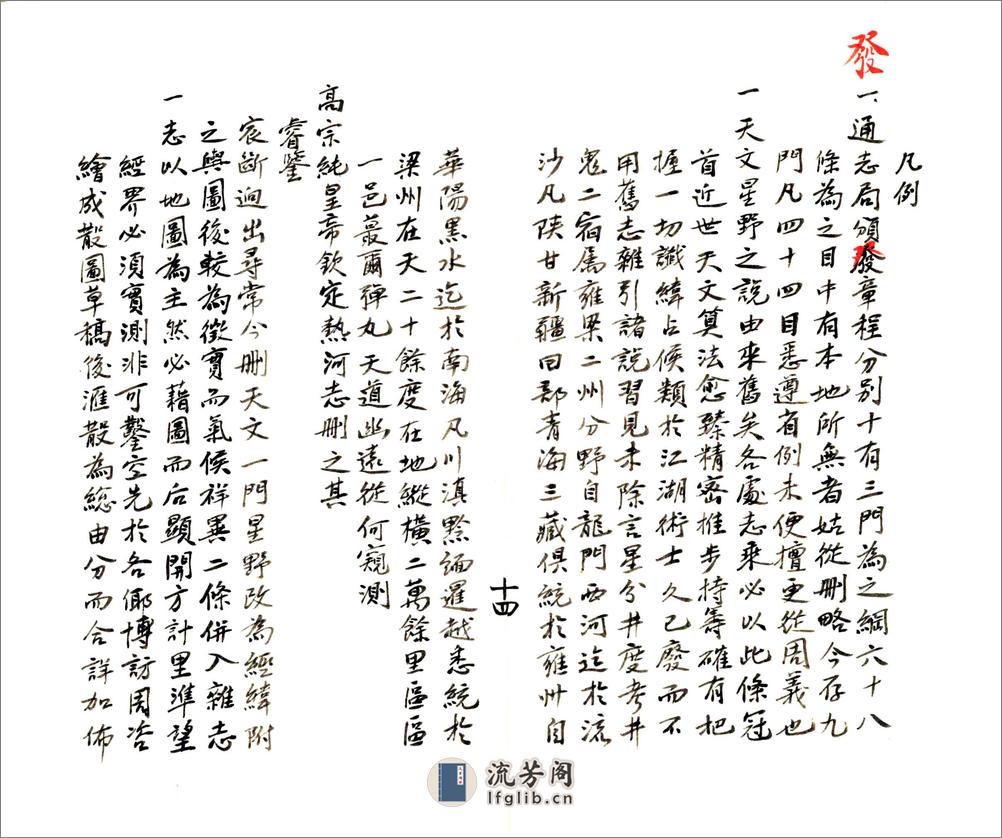 發
凡例
一通志局頒發章程分別十有三門為之綱六十八
條為之目中有本地所無者姑從刪略今存九
門凡四十四目悉遵省例未便擅更從周義也
一天文星野之說由來舊矣各處志乘必以此條冠
首近世天文算法愈臻精密推步持籌確有把
握一切讖緯占候類於江湖術士久已廢而不
用舊志雜引諸說習見未除言星分井度考井
鬼二宿屬雍梁二州分野自龍門西河迄於流
沙凡陝甘新疆回部青海三藏俱統於雍州自
華陽黑水迄於南海凡川滇黔緬暹越悉統於
梁州在天二十餘度在地縱橫二萬餘里區區
一邑蕞爾彈丸天道幽遠從何窺測
高宗純皇帝欽定熱河志刪之其
睿鑒
宸斷迥出尋常今刪天文一門星野改為經緯附
之輿圖後較為徵實而氣候祥異二條併入雜志
一志以地圖為主然必藉圖而后顯開方計里準望
經界必須實測非可鑿空先於各鄉博訪周咨
繪成散圖草稿後滙散為總由分而合詳加佈
十四
流芳阁
lfglib.cn